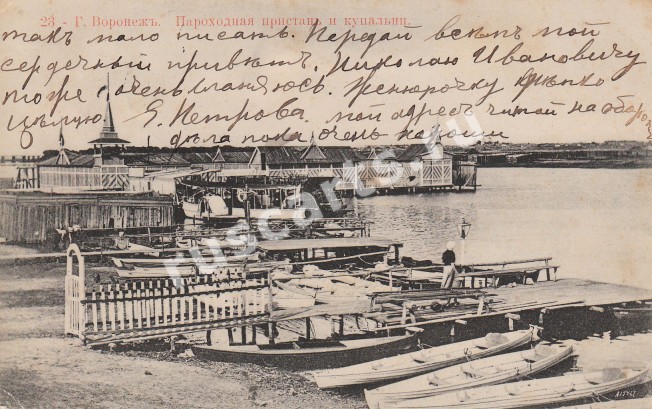 23 - Г. Воронежъ. Пароходная пристань и купальни.
такъ мало писать. Передай всѣмъ мой
сердечный привѣтъ. Николаю Ивановичу
тоже очень кланяюсь. Женюрочку крѣпко
цѣлую Е. Петрова. мой адресъ читай на оборот
дѣла пока очень хороши
ruscarts.ru